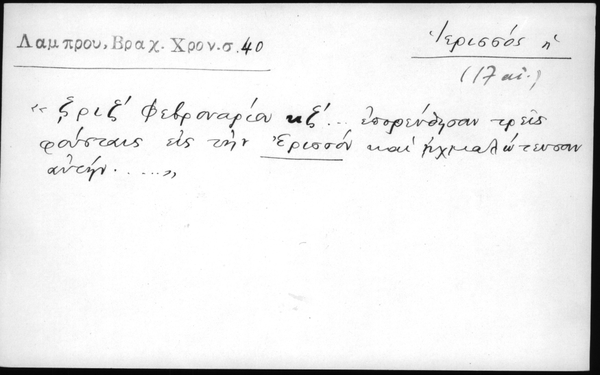 Λαμπρου, Βραχ. Χρον.σ. 40
Ἱερισσός ἡ
(17 αἰ.)
« ͵ζριζ′ Φεβρουαρίου κζ′... ἐπορεύθησαν τρεῖς
φούσταις εἰς τὴν Ἐρισσόν καὶ ᾐχμαλώτευσαν
αὐτήν......»